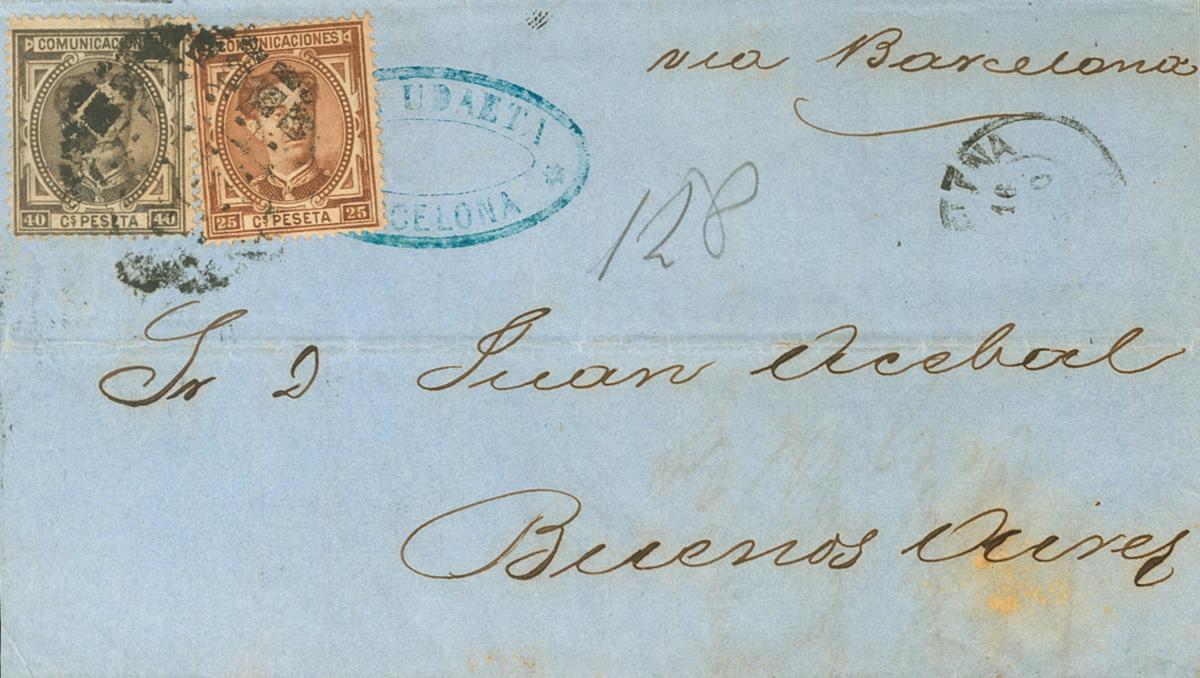 COMUNICACIONES
40 Cs PESETA 40
COMUNICACIONES
25 Cs PESETA 25
UDAETA
BARCELONA
via Barcelona
128
Sr D Juan Acebal
Buenos Aires